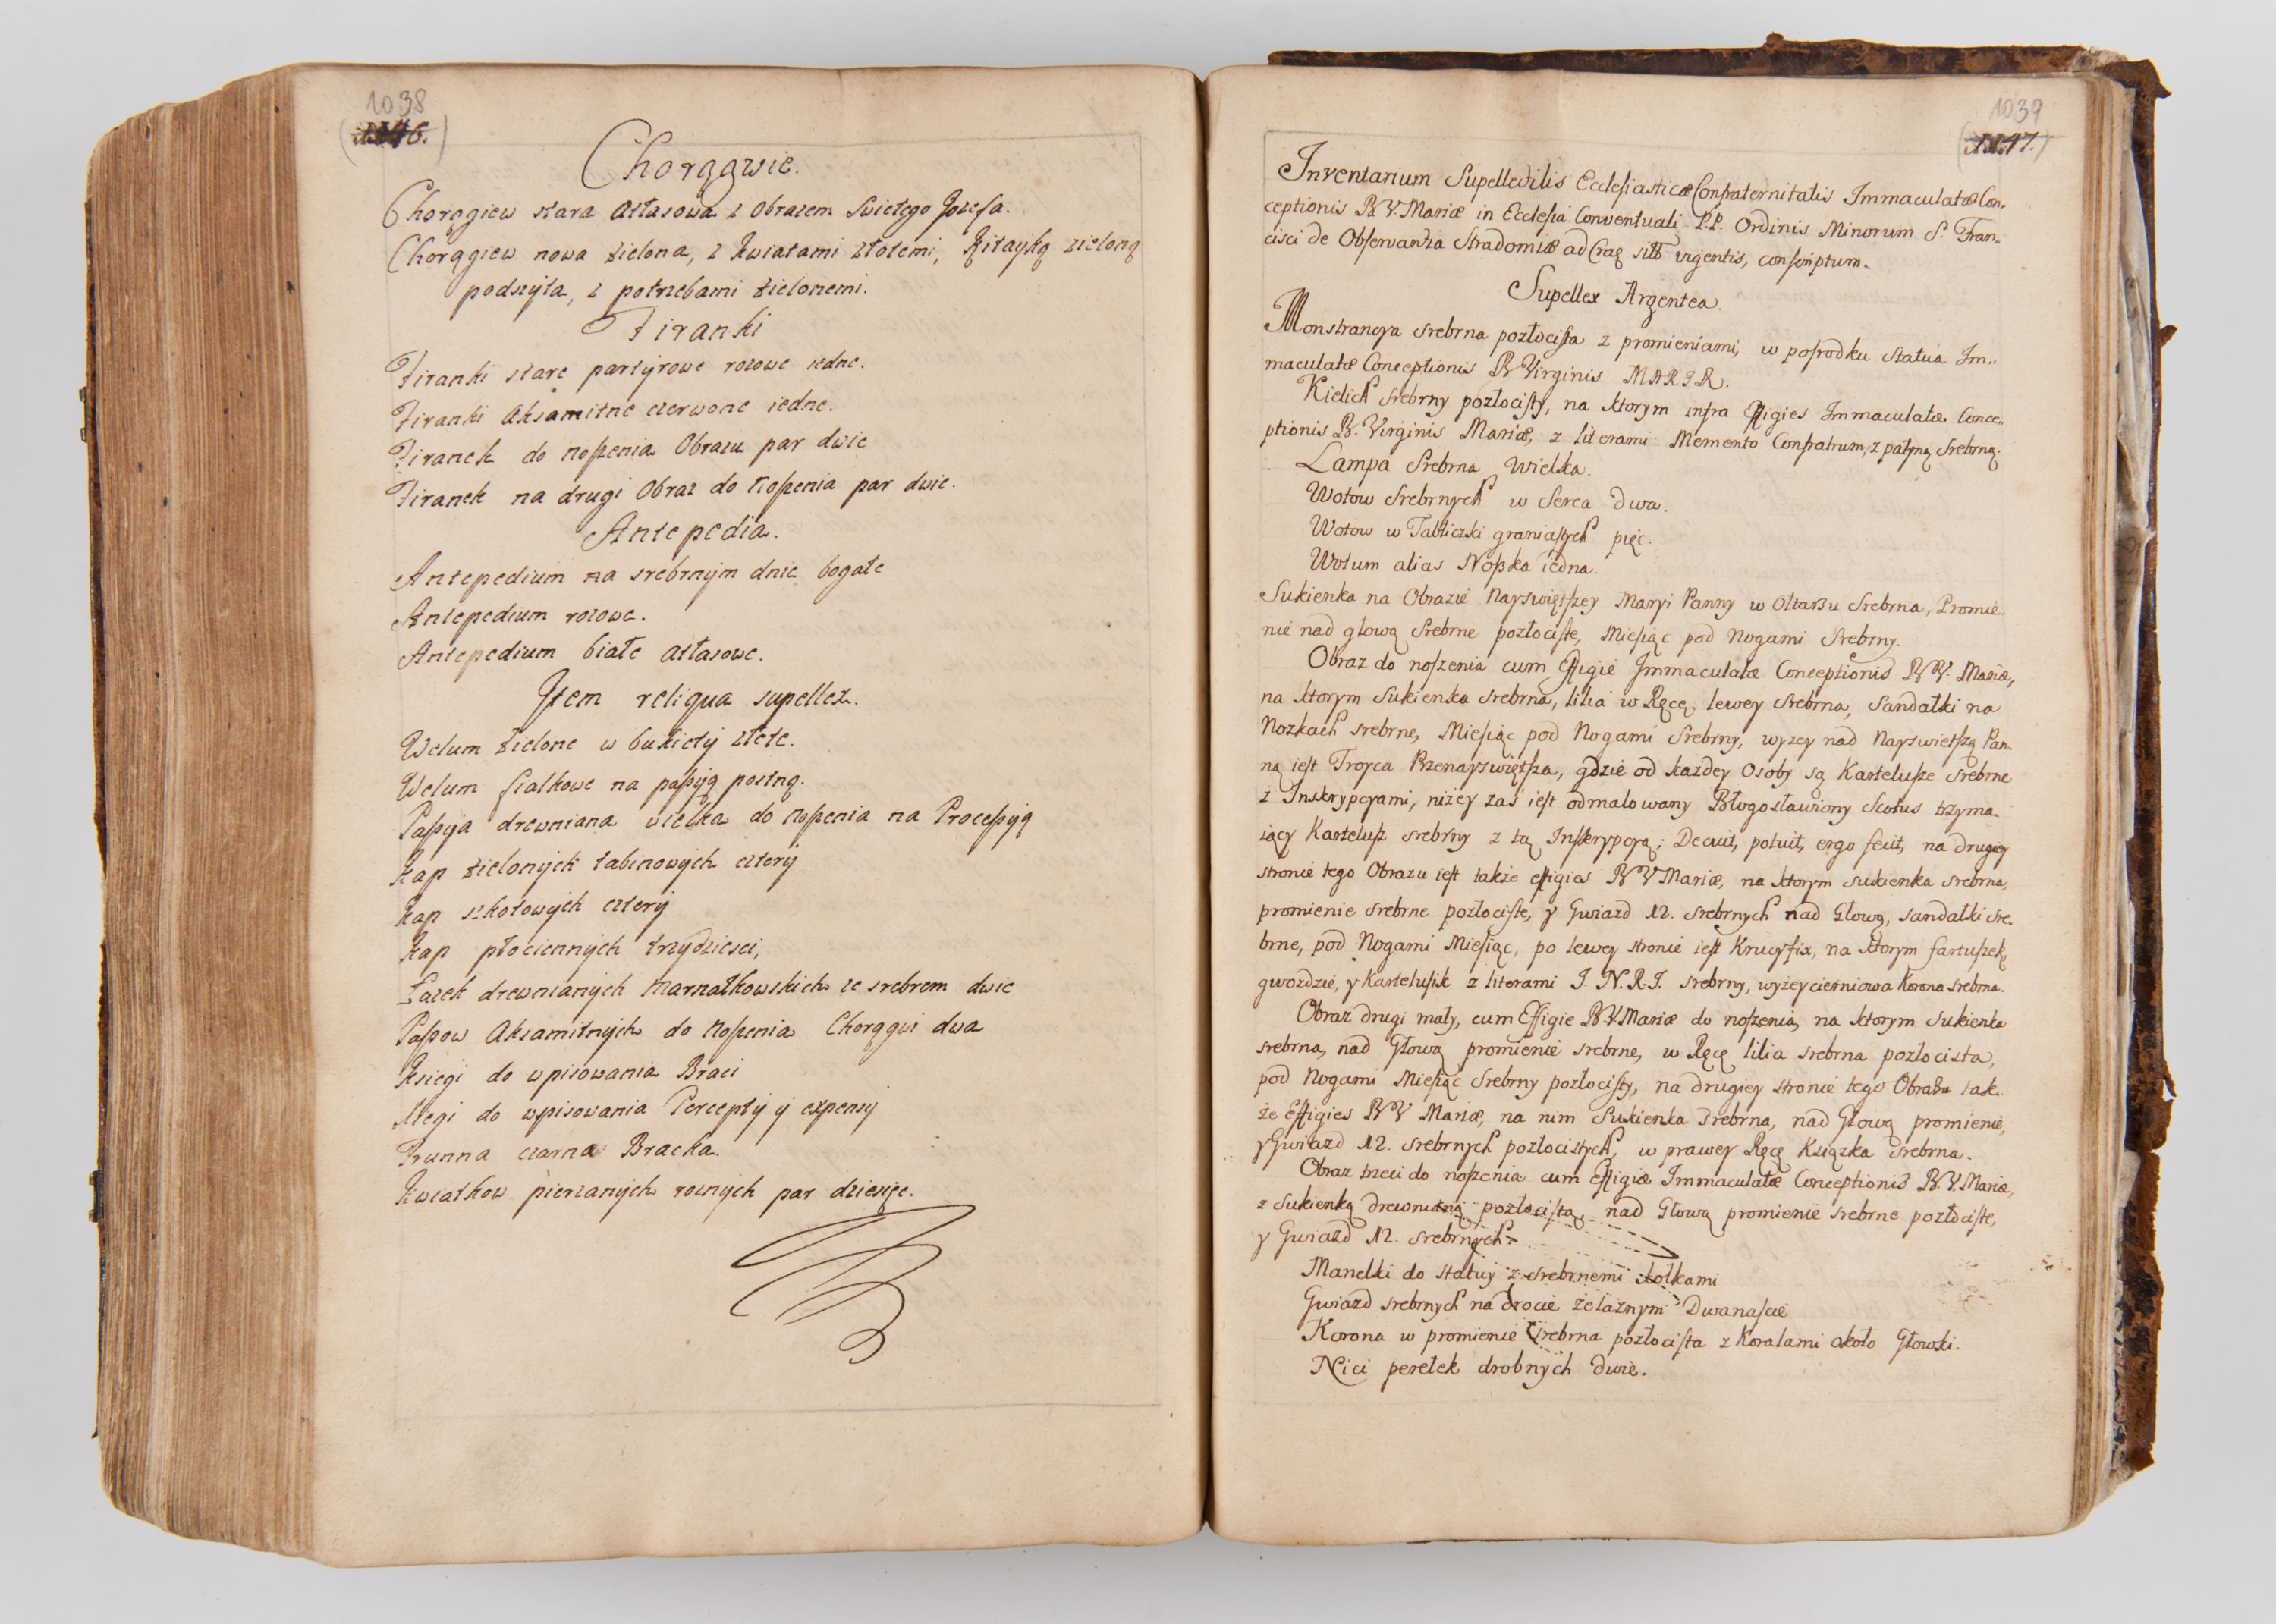 1038
(1146.)
Chorągwie.
Chorągiew stara Atłasowa z Obrazem Swietego Jozefa.
Chorągiew nowa zielona, z kwiatami złotemi, Kitayką zieloną
podszyta, z potrzebami zielonemi.
Firanki
Firanki stare partyrowe rozowe iedne.
Firanki Aksamitne czerwone iedne.
Firanek do noszenia Obrazu par dwie
Firanek na drugi Obraz do noszenia par dwie.
Antepedia.
Antepedium na srebrnym dnie bogate
Antepedium rozowe.
Antepedium białe Atłasowe.
Item reliqua supellex.
Welum zielone w bukiety złote.
Welum fialkowe na passyą postną.
Passyja drewniana wielka do noszenia na Processyą
Kap zielonych tabinowych cztery
Kap szkotowych cztery
Kap płociennych trzydziesci,
Lasek drewnianych Marszałkowskich ze srebrem dwie
Passow Aksamitnych do noszenia Chorągwi dwa
Ksiegi do wpisowania Braci
Xiegi do wpisowania Percepty y expensy
Trunna czarna Bracka.
Kwiatkow pierzanych roznych par dziesięc.
1039
(1147.)
Inventarium Supellectilis Ecclesiasticæ Confraternitatis Immaculatæ Con-
ceptionis B V. Mariæ in Ecclesia Conventuali P.P. Ordinis Minorum S. Fran-
cisci de Observantia Stradomiæ ad Crac sitt vigentis, conscriptum.
Supellex Argentea.
Monstrancya srebrna pozłocista z promieniami, w posrodku Statua Im-
maculatæ Conceptionis B Virginis MARIÆ.
Kielich srebrny pozłocisty, na ktorym infra Effigies Immaculatæ Conce-
ptionis B. Virginis Mariæ, z literami Memento Confratrum, z patyną Srebrną.
Lampa Srebrna Wielka.
Wotow Srebrnych w Serca Dwa.
Wotow w Tabliczki graniastych pięc.
Wotum alias Noszka iedna.
Sukienka na Obrazie Nayswiętszey Maryi Panny w Ołtarzu Srebrna, Promie
nie nad głową Srebrne pozłociste, Miesiąc pod Nogami Srebrny.
Obraz do noszenia cum Effigie Immaculatæ Conceptionis B V. Mariæ,
na ktorym Sukienka srebrna, lilia w Ręcę lewey Srebrna, Sandałki na
Nozkach srebrne, Miesiąc pod Nogami Srebrny, wyzey nad Nayswietszą Pan-
ną iest Troyca Przenayswiętsza, gdzie od kazdey Osoby są Kartelusze srebrne
z Inskrypcyami, niżey zaś iest odmalowany Błogosławiony Scotus trzyma-
iący Kartelusz srebrny z tą Inskrypcyą: Decuit, potuit, ergo fecit, na drugiey
stronie tego Obrazu iest także effigies B V Mariæ, na ktorym sukienka srebrna,
promienie srebrne pozłociste, y Gwiazd 12. srebrnych nad Głową, sandałki sre-
brne, pod Nogami Miesiąc, po lewey stronie iest Krucyfix, na ktorym fartuszek,
gwozdzie, y Kartelusik z literami I. N. R. I. srebrny, wyżey cierniowa Korona srebrna.
Obraz drugi mały, cum Effigie B V. Mariæ do noszenia, na ktorym Sukienka
srebrna, nad Głową promienie srebrne, w Ręcę lilia srebrna pozłocista,
pod Nogami Miesiąc Srebrny pozłocisty, na drugiey stronie tego Obrazu tak-
że Effigies B V Mariæ, na nim Sukienka srebrna, nad Głową promienie,
y Gwiazd 12. srebrnych pozłocistych, w prawey Ręcę Książka Srebrna.
Obraz trzeci do noszenia cum Effigie Immaculatæ Conceptionis B. V. Mariæ,
z Sukienką drewnianą pozłocistą, nad Głową promienie srebrne pozłociste,
y Gwiazd 12. srebrnych.
Manelki do statuy z srebrnemi kolkami
Gwiazd srebrnych na drocie żelaznym Dwanascie
Korona w promienie Srebrna pozłocista z Koralami około Głowki.
Nici perełek drobnych dwie.